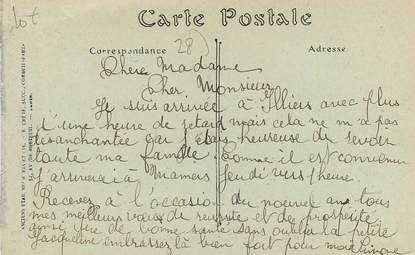 lot
Carte Postale
Correspondance
28
Adresse
Chère Madame
Cher Monsieur
Je suis arrivée à Illiers avec plus
d'une heure de retard mais cela ne m'a pas
désanchantée car j'étais heureuse de revoir
toute ma famille. Comme il est convenu
j'arriverai à Mamers jeudi vers 1 heure.
Recevez à l'occasion du nouvel an tous
mes meilleurs vœux de réussite et de prospérité
ainsi que de bonne santé sans oublier la petite
Jacqueline embrassez là bien fort pour moi